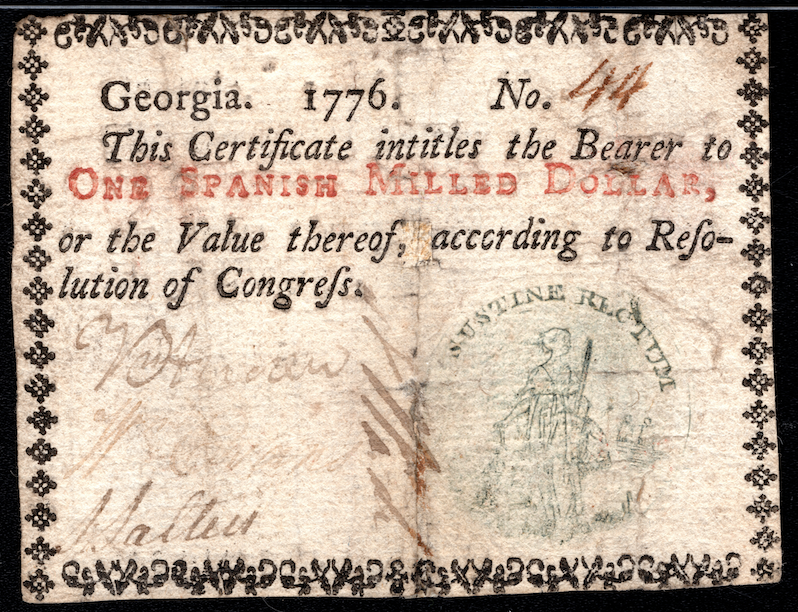 Georgia. 1776. No. 44
This Certificate intitles the Bearer to
ONE SPANISH MILLED DOLLAR,
or the Value thereof, according to Reſo-
lution of Congreſs.
SUSTINE RECTUM